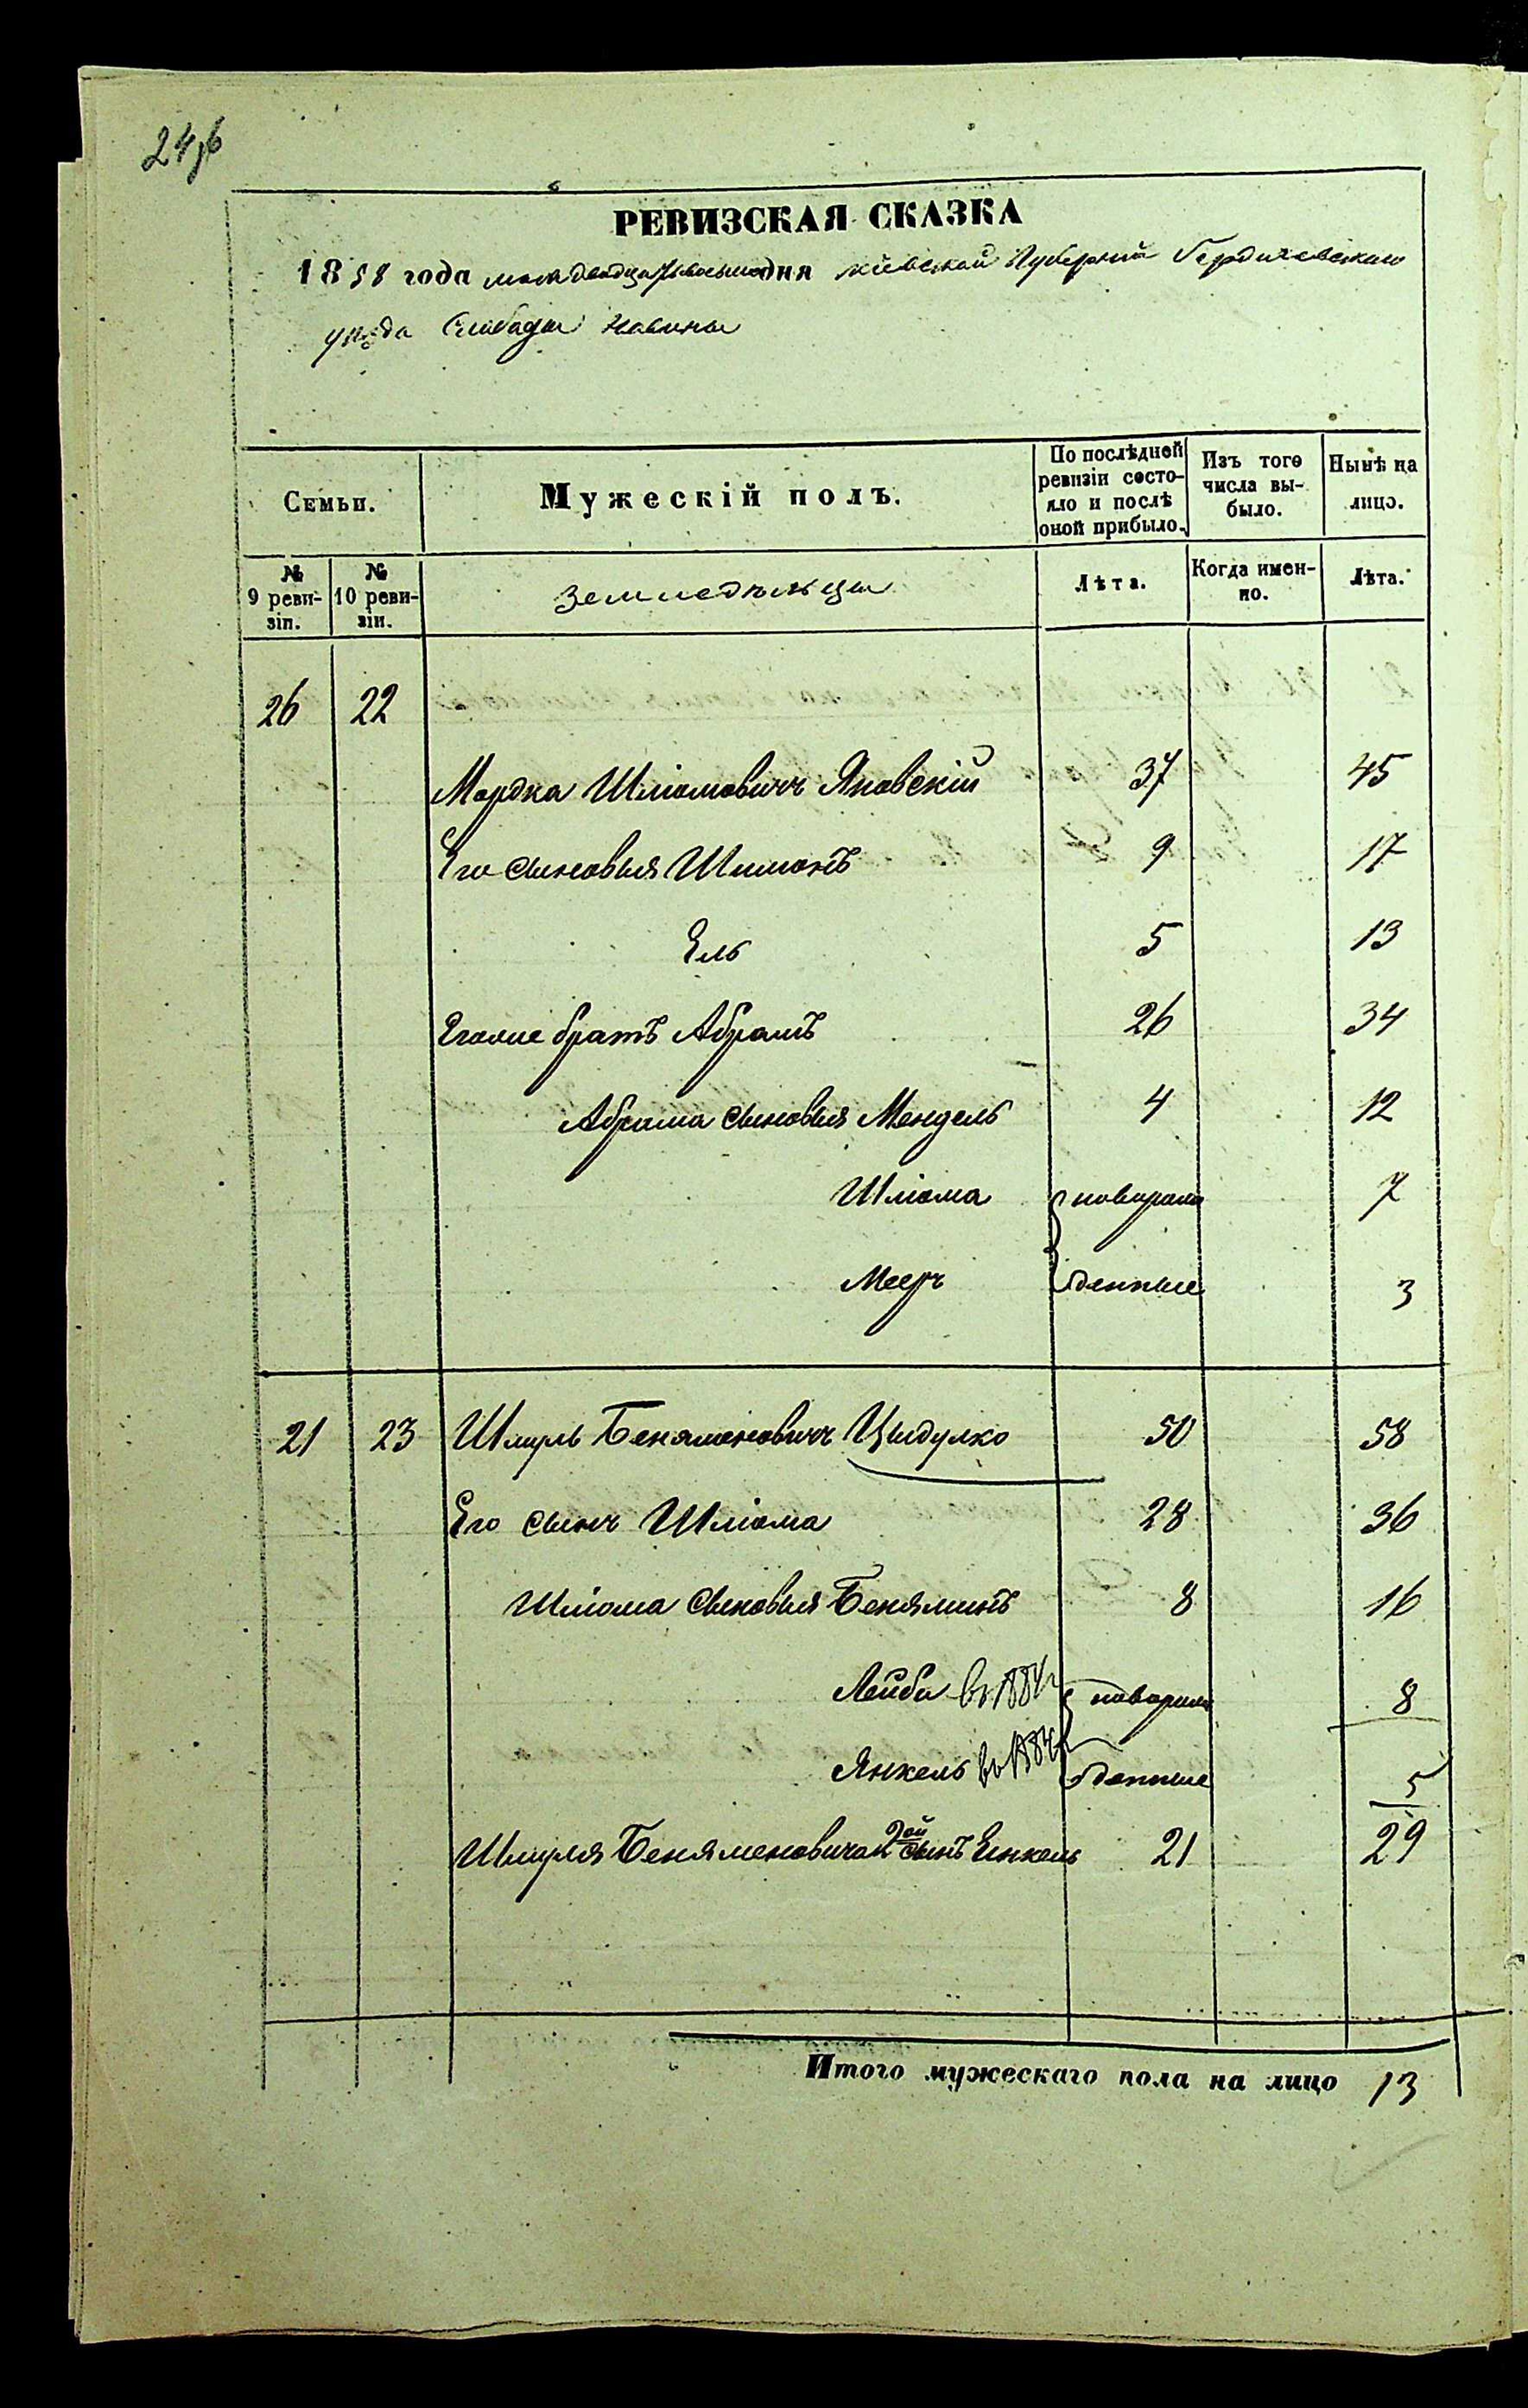 РЕВИЗСКАЯ СКАЗКА
1858 года мая двадцать восьмого дня Кіевской Губерніи Бердичевскаго
уѣзда Слободы Новины
Семьи.
Мужескій полъ.
По послѣдней ревизіи состояло и послѣ оной прибыло.
Изъ того числа выбыло.
Нынѣ на лицо.
№ 9 ревизіи.
№ 10 ревизіи.
Земледѣльцы
Лѣта.
Когда именно.
Лѣта.
26 22
Мордка Шліомовичъ Яновскій 37 45
Его сыновья Шимонъ 9 17
Ель 5 13
Егоже братъ Абрамъ 26 34
Абрама сыновья Мендель 4 12
Шліома новорож 7
Мееръ денные 3
21 23 Шмуль Беняменовичъ Цыдулко 50 58
Его сынъ Шліома 28 36
Шліома сыновья Беняминъ 8 16
Лейба новорож 8
Янкель денные 5
Шмуля Беняменовича 2ой сынъ Енкель 21 29
Итого мужескаго пола на лицо 13